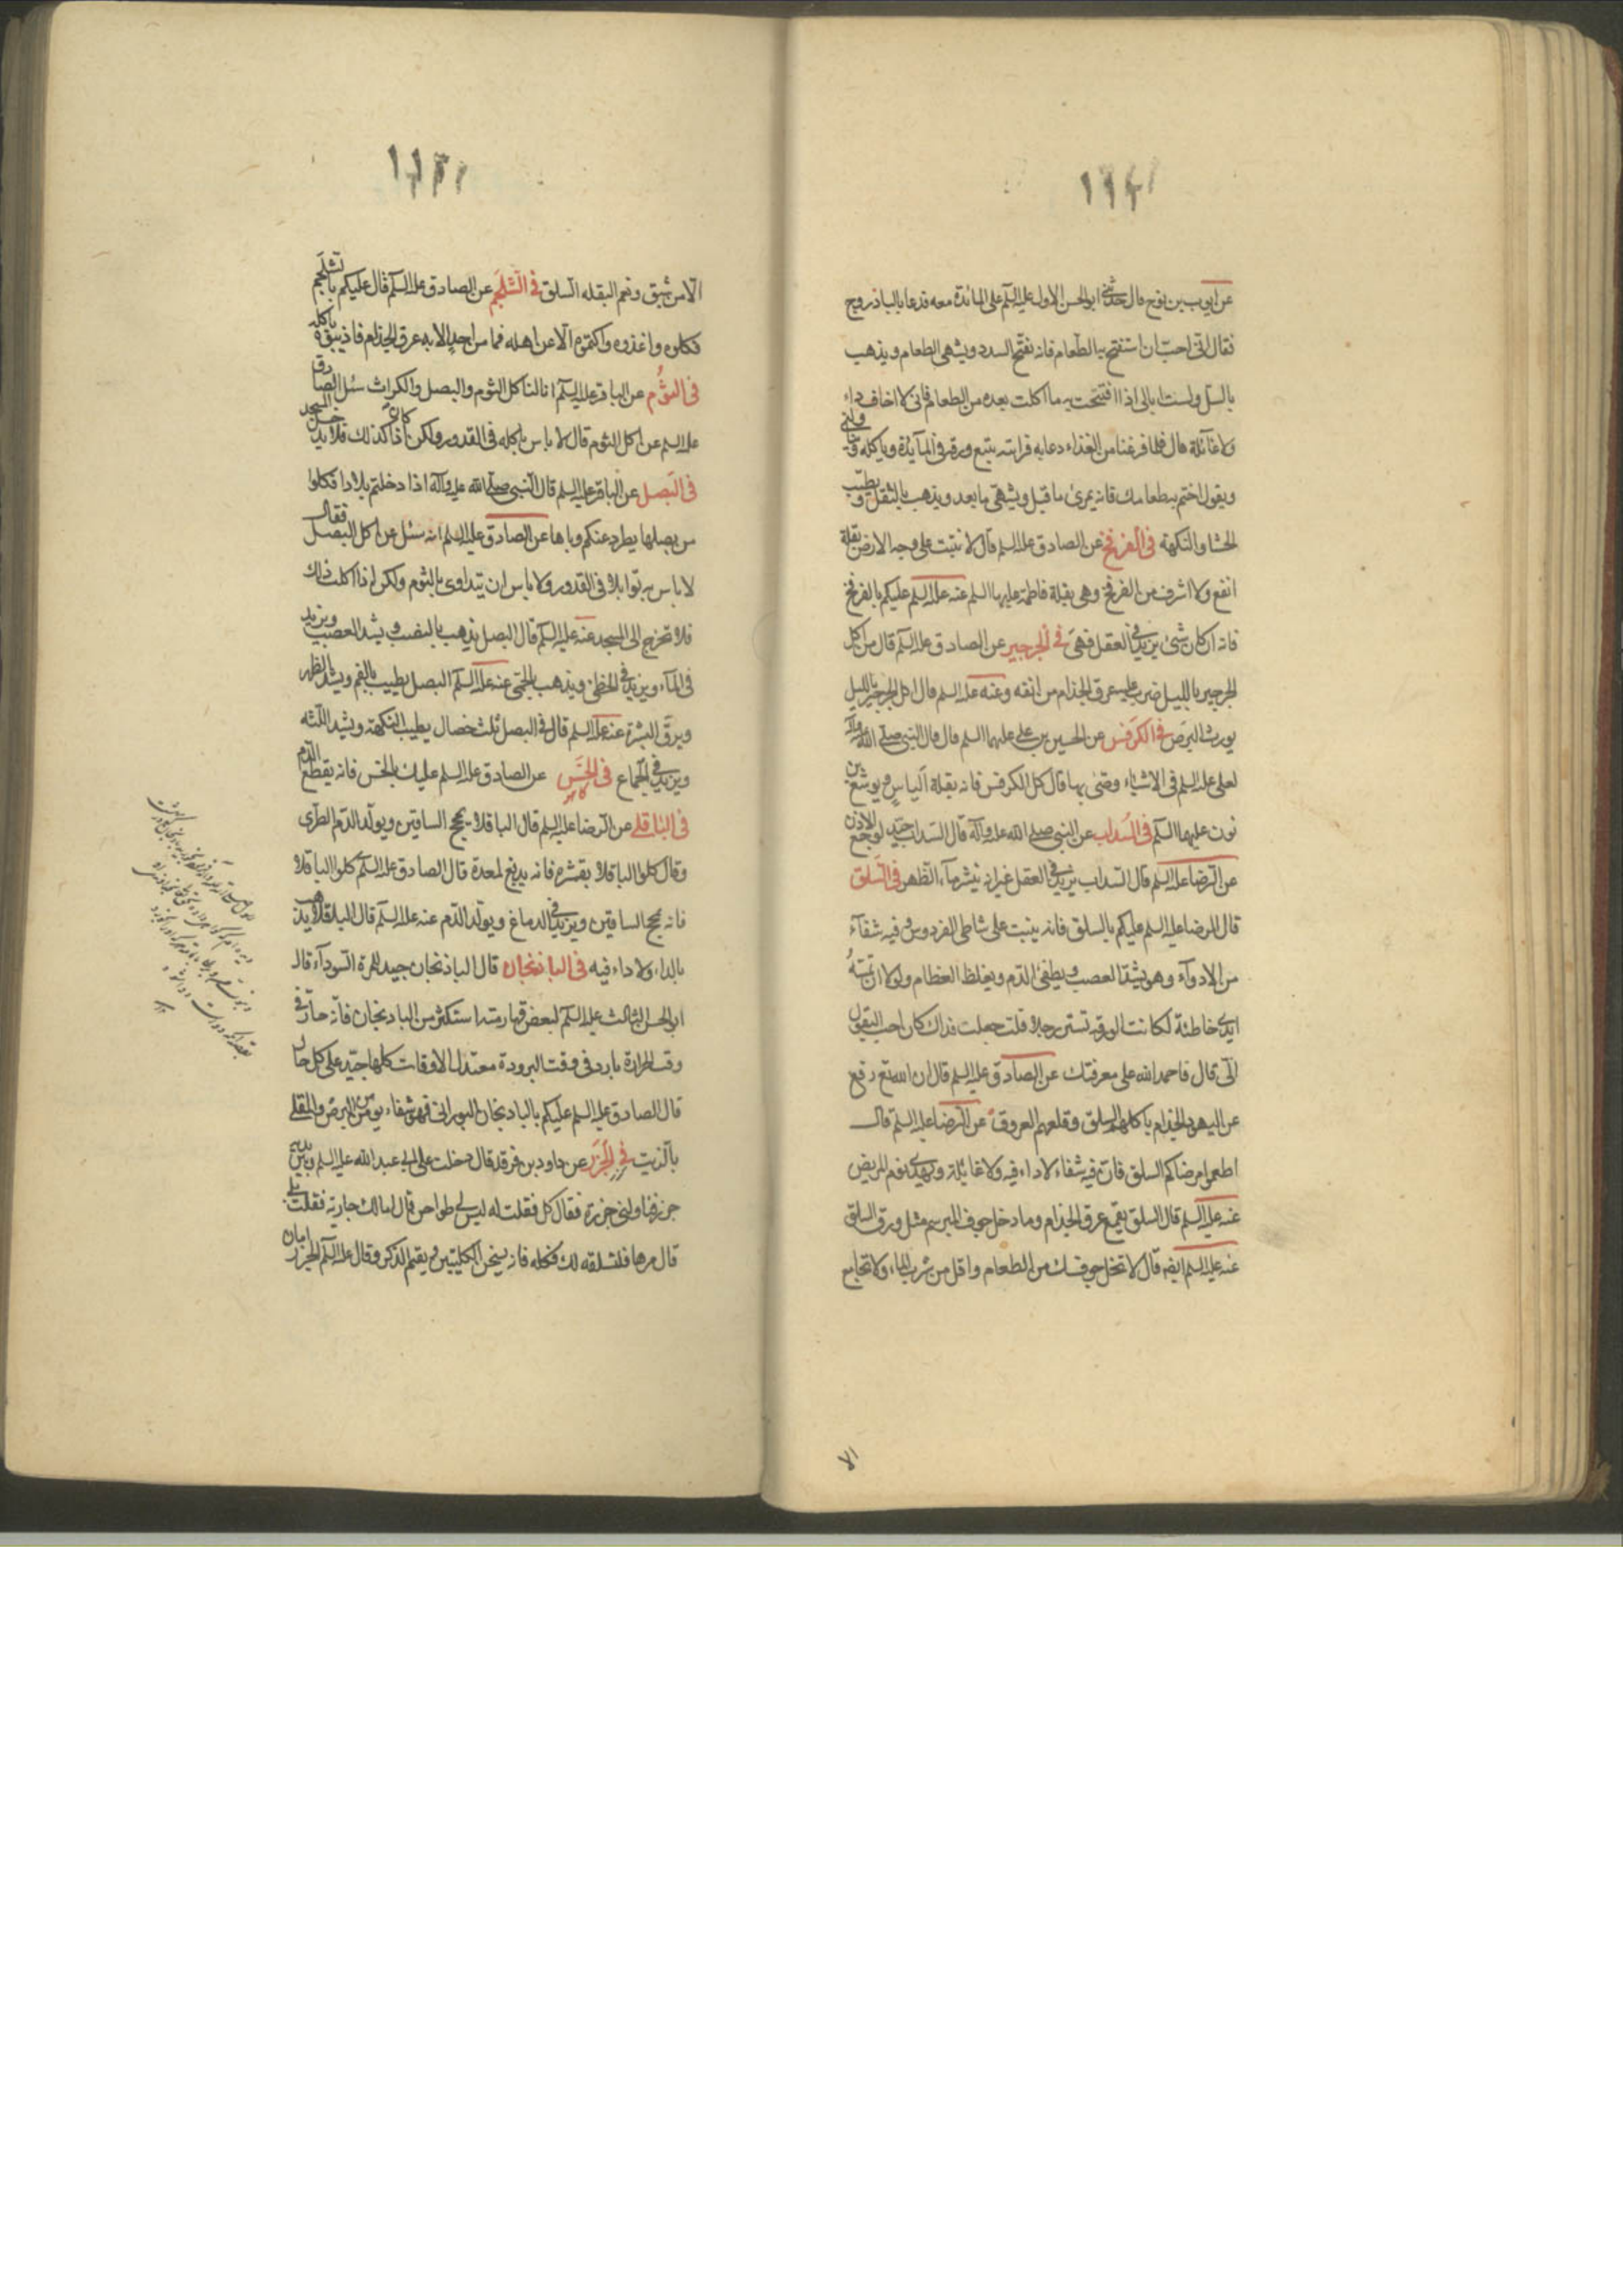 عن ايوب بن نوح قال حدثني ابو الحسن الاول عليه السلم على المائدة معه فدعا بالباذروج
فقال انى احب ان استفتح به الطعام فانه يفتح السدد ويشهى الطعام ويذهب
بالسل ولست ابالى اذا افتتحت به ما اكلت بعده من الطعام فانى لا اخاف داء
ولا غائلة قال فلما فرغنا من الغذاء دعا به فرايته يتبع ورقه في المآئدة وياكله
ويقول اختم بطعامك فانه يمرئ ما قبل ويشهى ما بعد ويذهب بالثقل ويطيب
الجشا والنكهة فى الفرفخ عن الصادق عليه السلم قال لا ينبت على وجه الارض بقلة
انفع ولا اشرف من الفرفخ وهى بقلة فاطمة عليها السلم عنه عليه السلم عليكم بالفرفخ
فانه ان كان شئ يزيد فى العقل فهى فى الجرجير عن الصادق عليه السلم قال من اكل
الجرجير بالليل ضرب عليه عرق الجذام من انفه وعنه عليه السلم قال اكل الجرجير بالليل
يورث البرص فى الكرفس عن الحسين بن على عليهما السلم قال قال النبى صلى الله عليه وآله
لعلى عليه السلم فى الاشياء وصى بها قال كل الكرفس فانه بقلة الياس ويوشع بن
نون عليهما السلم فى السداب عن النبى صلى الله عليه وآله قال السداب جيد لوجع الاذن
عن الرضا عليه السلم قال السداب يزيد فى العقل غير انه ينشر مآء الظهر فى السلق
قال الرضا عليه السلم عليكم بالسلق فانه ينبت على شاطى الفردوس وفيه شفآء
من الادوآء وهو يشد العصب ويطفئ الدم ويغلظ العظام ولولا ان تمسه
ايدى خاطئة لكانت الورقة تستر رجلا قلت جعلت فداك كان احب البقول
الى قال فاحمد الله على معرفتك عن الصادق عليه السلم قال ان الله تع رفع
عن اليهود الجذام باكلهم السلق وقلعهم العروق عن الرضا عليه السلم قال
اطعموا مرضاكم السلق فان فيه شفاء لا داء فيه ولا غائلة ويهدى نوم المريض
عنه عليه السلم قال السلق يقمع عرق الجذام وما دخل جوف المبرسم مثل ورق السلق
عنه عليه السلم ايضه قال لا تخل جوفك من الطعام واقل من شرب الماء ولا تجامع
الا
الا من شبق ونعم البقله السلق فى الشلجم عن الصادق عليه السلم قال عليكم بالشلجم
فكلوه واغذوه واكتموه الا عن اهله فما من احد الا به عرق الجذام فاذيبوه باكله
فى الثوم عن الباقر عليه السلم انا لناكل الثوم والبصل والكراث سئل الصادق
عليه السلم عن اكل الثوم قال لا باس باكله فى القدور ولكن اذا كان كذلك فلا يدخل المسجد
فى البصل عن الباقر عليه السلم قال النبى صلى الله عليه وآله اذا دخلتم بلادا فكلوا
من بصلها يطرد عنكم وباها عن الصادق عليه السلم انه سئل عن اكل البصل فقال
لا باس به توابلا فى القدور ولا باس ان يتداوى بالثوم ولكن اذا اكلت ذلك
فلا تخرج الى المسجد عنه عليه السلم قال البصل يذهب بالنصب ويشد العصب ويزيد
فى المآء ويزيد فى الخطى ويذهب بالحمى عنه عليه السلم البصل يطيب الفم ويشد الظهر
ويرق البشرة عنه عليه السلم قال فى البصل ثلث خصال يطيب النكهة ويشد اللثه
ويزيد فى الجماع فى الخس عن الصادق عليه السلم عليك بالخس فانه يقطع الدم
كاهو
فى الباقلى عن الرضا عليه السلم قال الباقلا يمخ الساقين ويولد الدم الطرى
وقال كلوا الباقلا بقشره فانه يدبغ المعدة قال الصادق عليه السلم كلوا الباقلا
فانه يمخ الساقين ويزيد فى الدماغ ويولد الدم عنه عليه السلم قال الباقلا يذهب
بالداء ولا داء فيه فى الباذنجان قال الباذنجان جيد للمرة السودآء قال
ابو الحسن الثالث عليه السلم لبعض قهارمته استكثر من الباذنجان فانه حار فى
وقت الحرارة بارد فى وقت البرودة معتدل الاوقات كلها جيد على كل حال
قال الصادق عليه السلم عليكم بالباذنجان البورانى فهو شفاء يؤمن من البرص والمقلى
بالزيت فى الجزر عن داود بن فرقد قال دخلت على ابى عبد الله عليه السلم وبين يديه
جزر فناولنى جزرة فقال كل فقلت له ليس لى طواحن قال اما لك جارية فقلت بلى
قال مرها فلتسلقه لك فكله فانه يسخن الكليتين ويقيم الذكر وقال عليه السلم الجزر امان